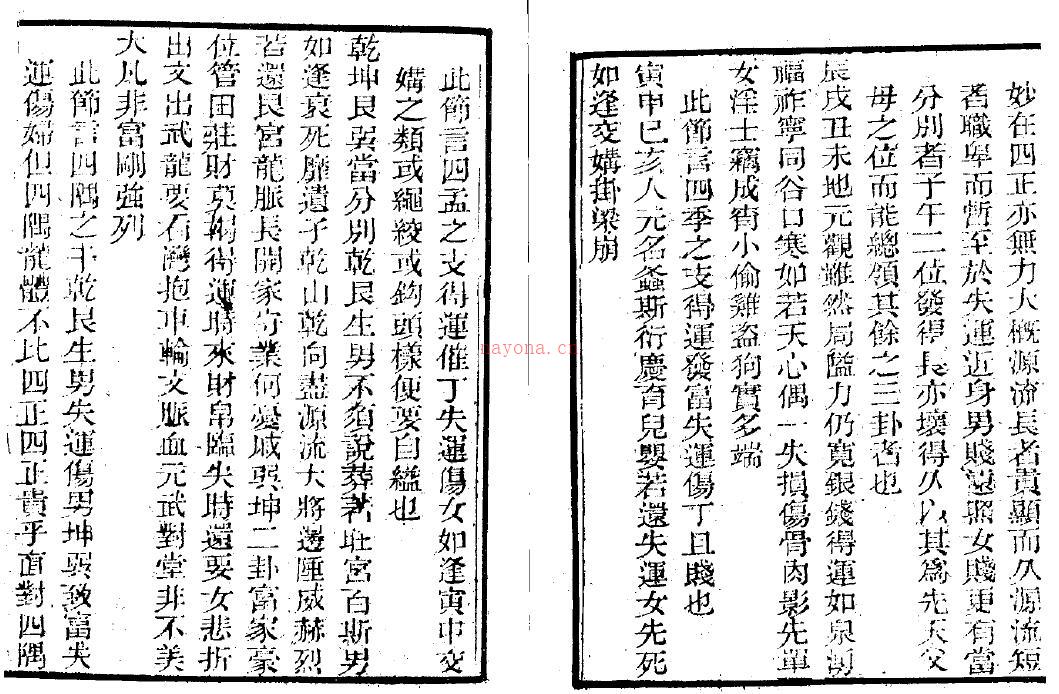 妙在四正亦無力大概源流長者貴顯而久源流短
者職卑而暫至於失運近身男賤遠照女賤更有當
分別者子午二位發得長亦壞得久以其為先天父
母之位而能總領其餘之三卦者也
辰戌丑未地元觀雖然局隘力仍寬銀錢得運如泉湧
福祚寧同谷口寒如若天心偶一失損傷骨肉影先單
女淫士竊成宵小偷雞盜狗實多端
此節言四季之支得運發富失運傷丁且賤也
寅申巳亥人元名螽斯衍慶育兒嬰若還失運女先死
如逢交媾掛梁崩
此節言四孟之支得運催丁失運傷女如逢寅申交
媾之類或繩綾或鈎頭樣便要自縊也
乾坤艮巽當分別乾艮生男不須說葬著旺宮百斯男
如逢衰死靡遺子乾山乾向盡源流大將邊陲威赫烈
若還艮宮龍脈長開家衍業何憂戚巽坤二卦富家豪
位管田莊財莫竭得運時來財帛臨失時還要女悲折
出文出武龍要石灣抱車輪文脈血元武對堂非不美
大凡非富剛強列
此節言四隅之干乾艮生男失運傷男坤巽致富失
運傷婦但四隅龍體不比四正四正貴乎直對四隅
nayona.cn